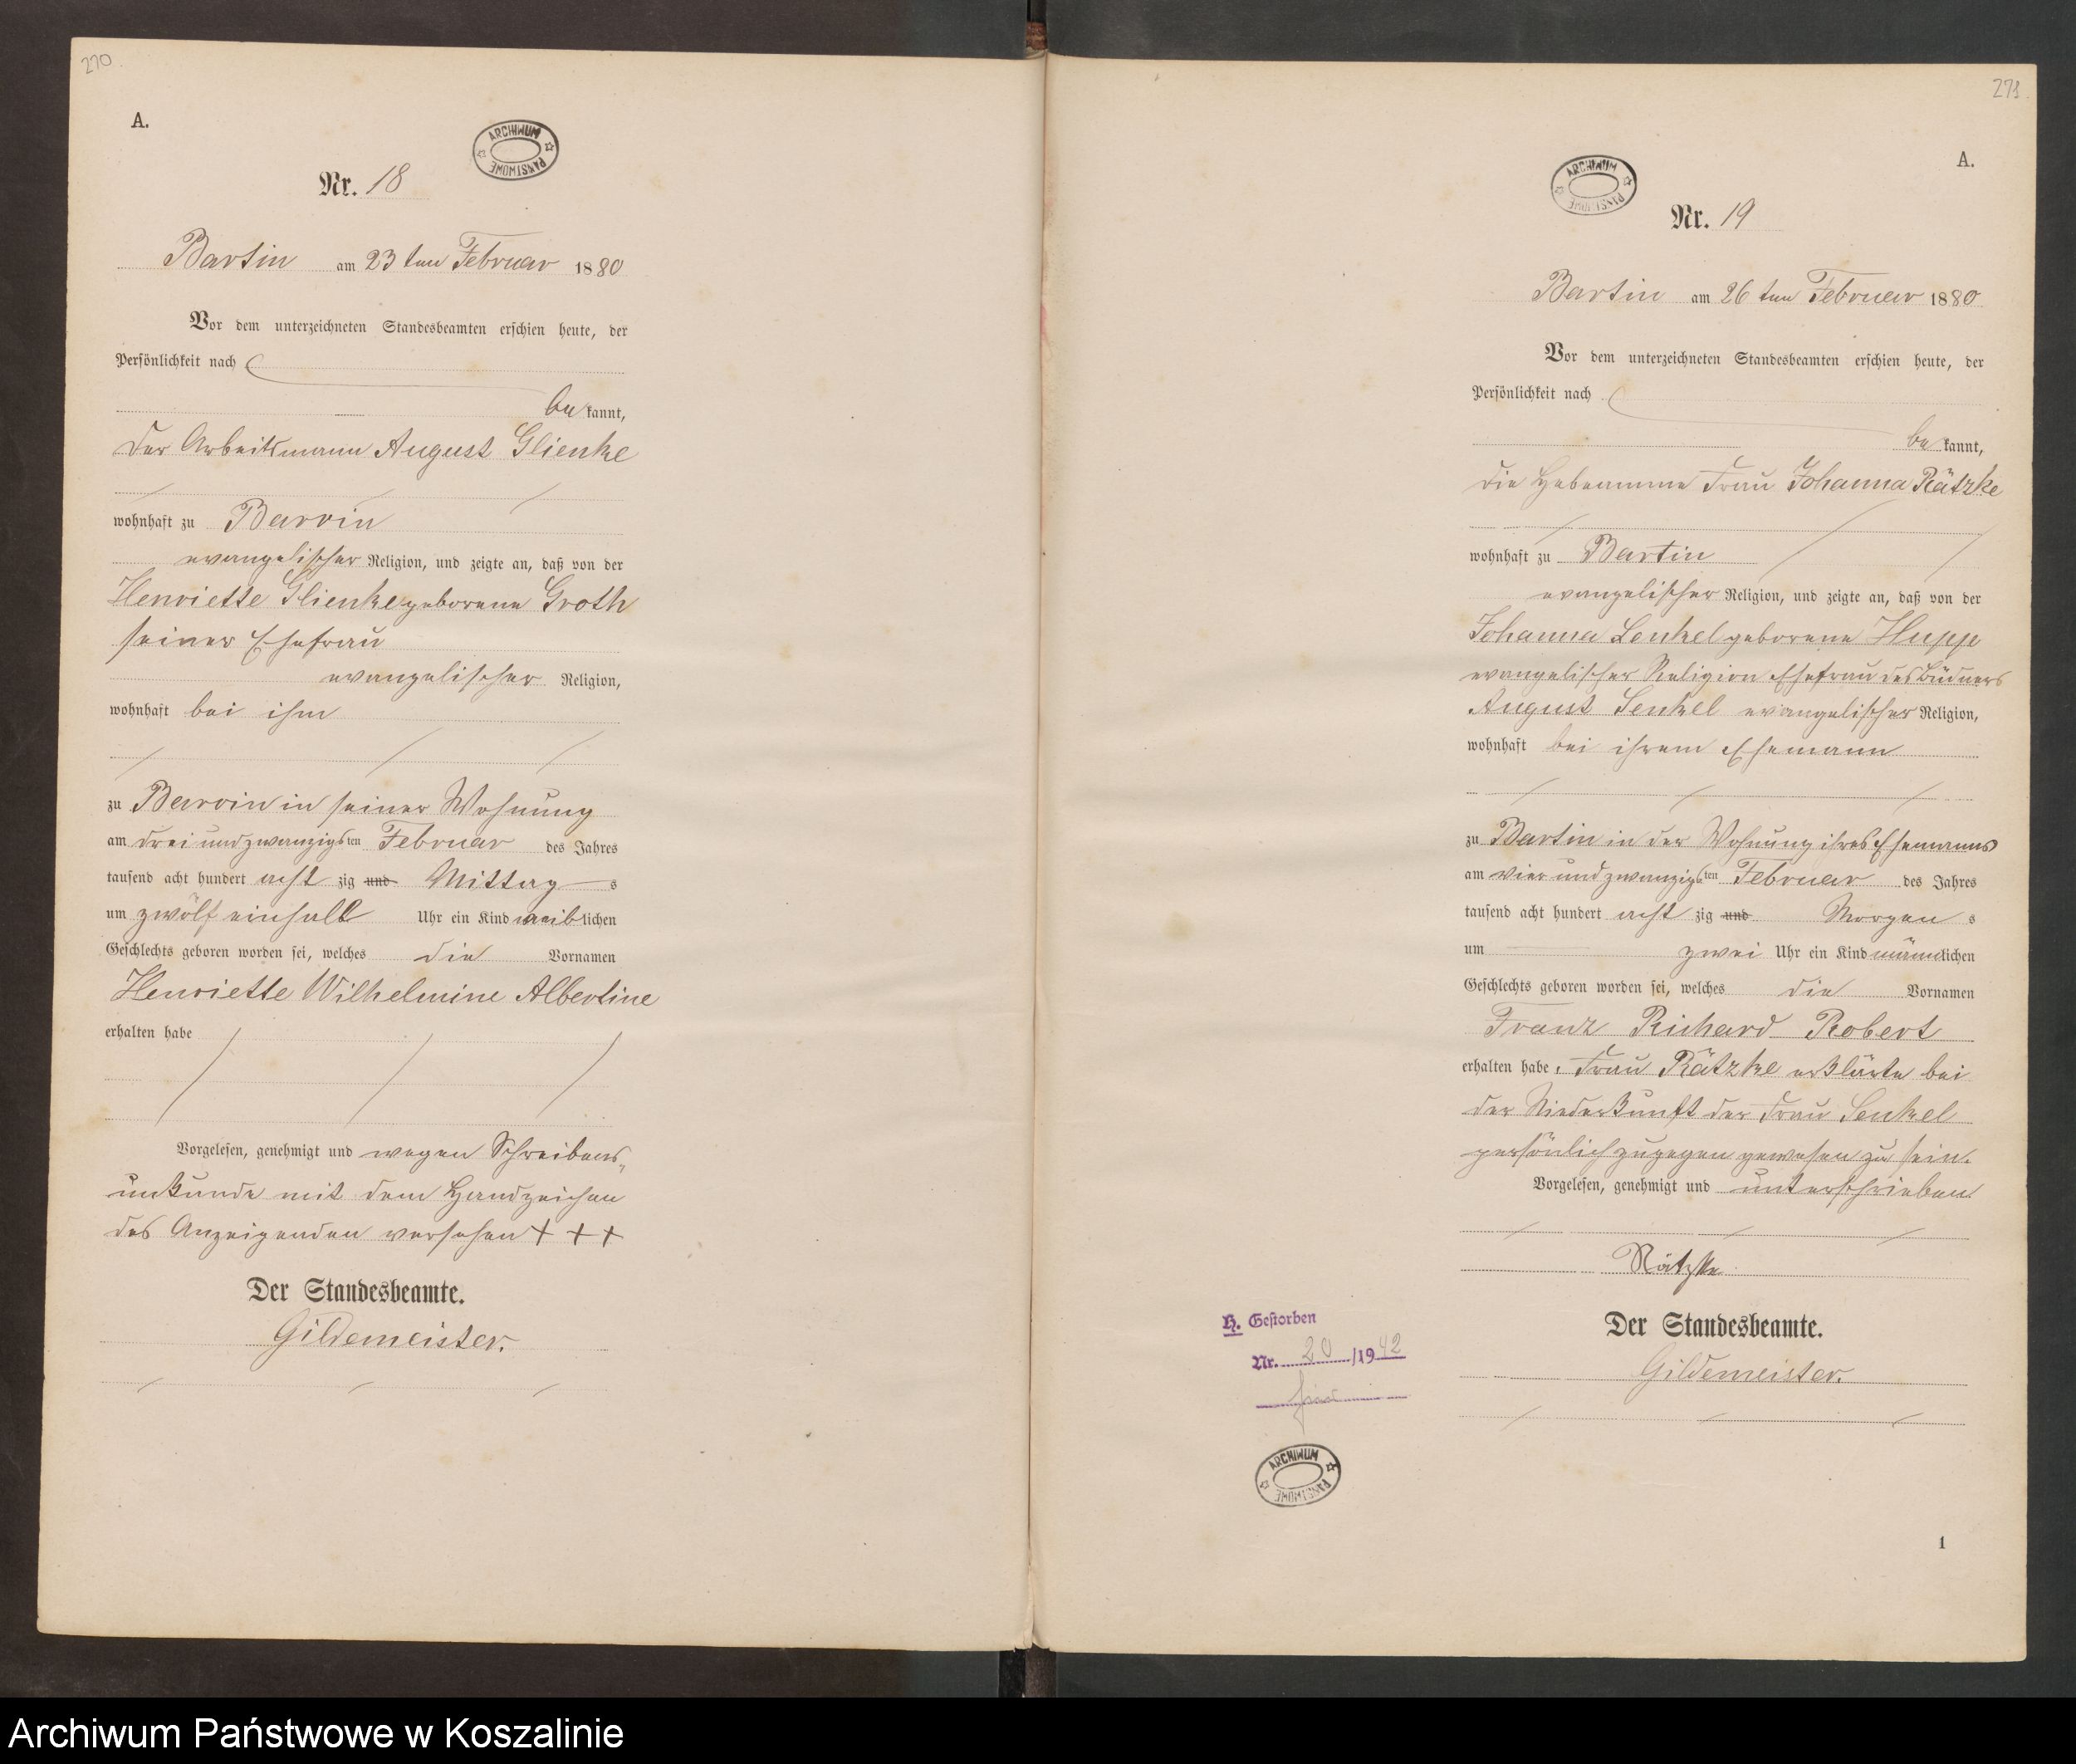 270.
A.
ARCHIWUM PAŃSTWOWE
Nr. 18
Bartin am 23 ten Februar 1880
Vor dem unterzeichneten Standesbeamten erschien heute, der
Persönlichkeit nach
be kannt,
der Arbeitsmann August Glienke
wohnhaft zu Barvin
evangelischer Religion, und zeigte an, daß von der
Henriette Glienke geborene Groth
seiner Ehefrau
evangelischer Religion,
wohnhaft bei ihm
zu Barvin in seiner Wohnung
am drei und zwanzigsten Februar des Jahres
tausend acht hundert acht zig und Mittag s
um zwölf einhalb Uhr ein Kind weiblichen
Geschlechts geboren worden sei, welches die Vornamen
Henriette Wilhelmine Albertine
erhalten habe
Vorgelesen, genehmigt und wegen Schreibens-
unkunde mit dem Handzeichen
des Anzeigenden versehen + + +
Der Standesbeamte.
Gildemeister.
271.
A.
ARCHIWUM PAŃSTWOWE
Nr. 19
Bartin am 26 ten Februar 1880
Vor dem unterzeichneten Standesbeamten erschien heute, der
Persönlichkeit nach
be kannt,
die Hebeamme Frau Johanna Rätzke
wohnhaft zu Bartin
evangelischer Religion, und zeigte an, daß von der
Johanna Senkel geborene Hupp
evangelischer Religion Ehefrau des Büdners
August Senkel evangelischer Religion,
wohnhaft bei ihrem Ehemann
zu Bartin in der Wohnung ihres Ehemanns
am vier und zwanzigsten Februar des Jahres
tausend acht hundert acht zig und Morgen s
um zwei Uhr ein Kind männlichen
Geschlechts geboren worden sei, welches die Vornamen
Franz Richard Robert
erhalten habe, Frau Rätzke erklärte bei
der Niederkunft der Frau Senkel
persönlich zugegen gewesen zu sein.
Vorgelesen, genehmigt und unterschrieben
Rätzke
Der Standesbeamte.
Gildemeister.
H. Gestorben
Nr. 20 /1942
ARCHIWUM PAŃSTWOWE
1
Archiwum Państwowe w Koszalinie